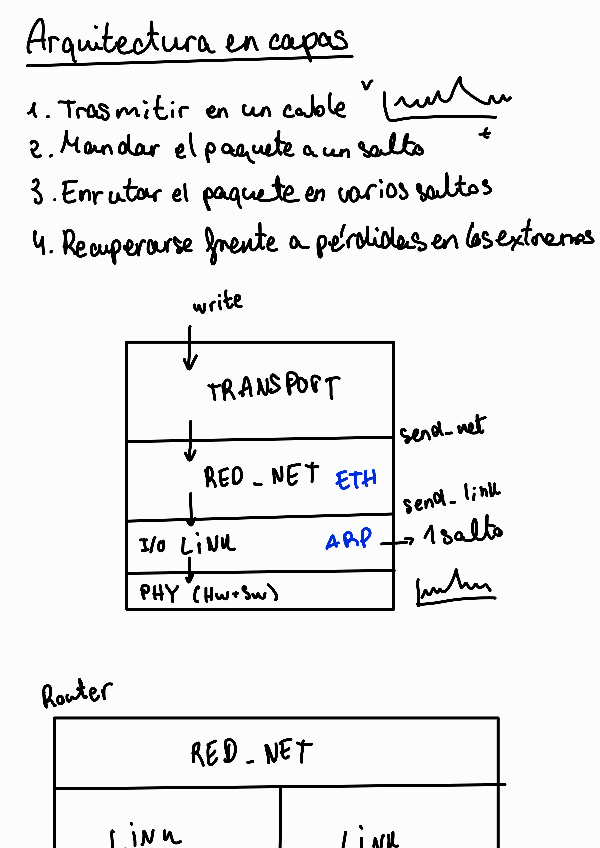 Arquitectura en capas
1. Trasmitir en un cable
v
t
2. Mandar el paquete a un salto
3. Enrutar el paquete en varios saltos
4. Recuperarse frente a pérdidas en los extremos
write
TRANSPORT
send_net
RED_NET ETH
send_link
I/O LINK ARP → 1 salto
PHY (HW+SW)
Router
RED_NET
LINK LINK